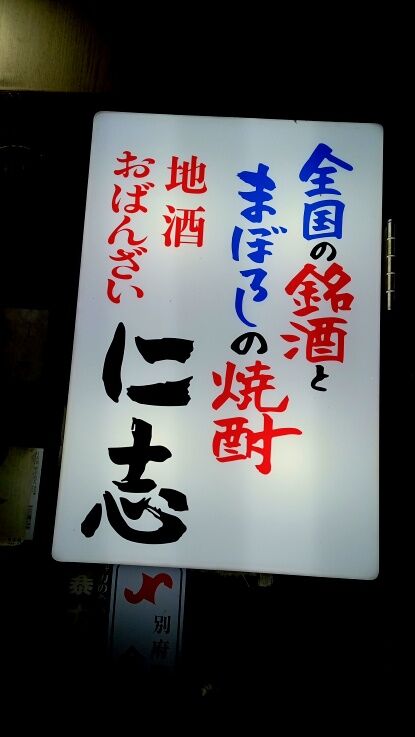 全国の銘酒と
まぼろしの焼酎
地酒
おばんざい
仁志
別府